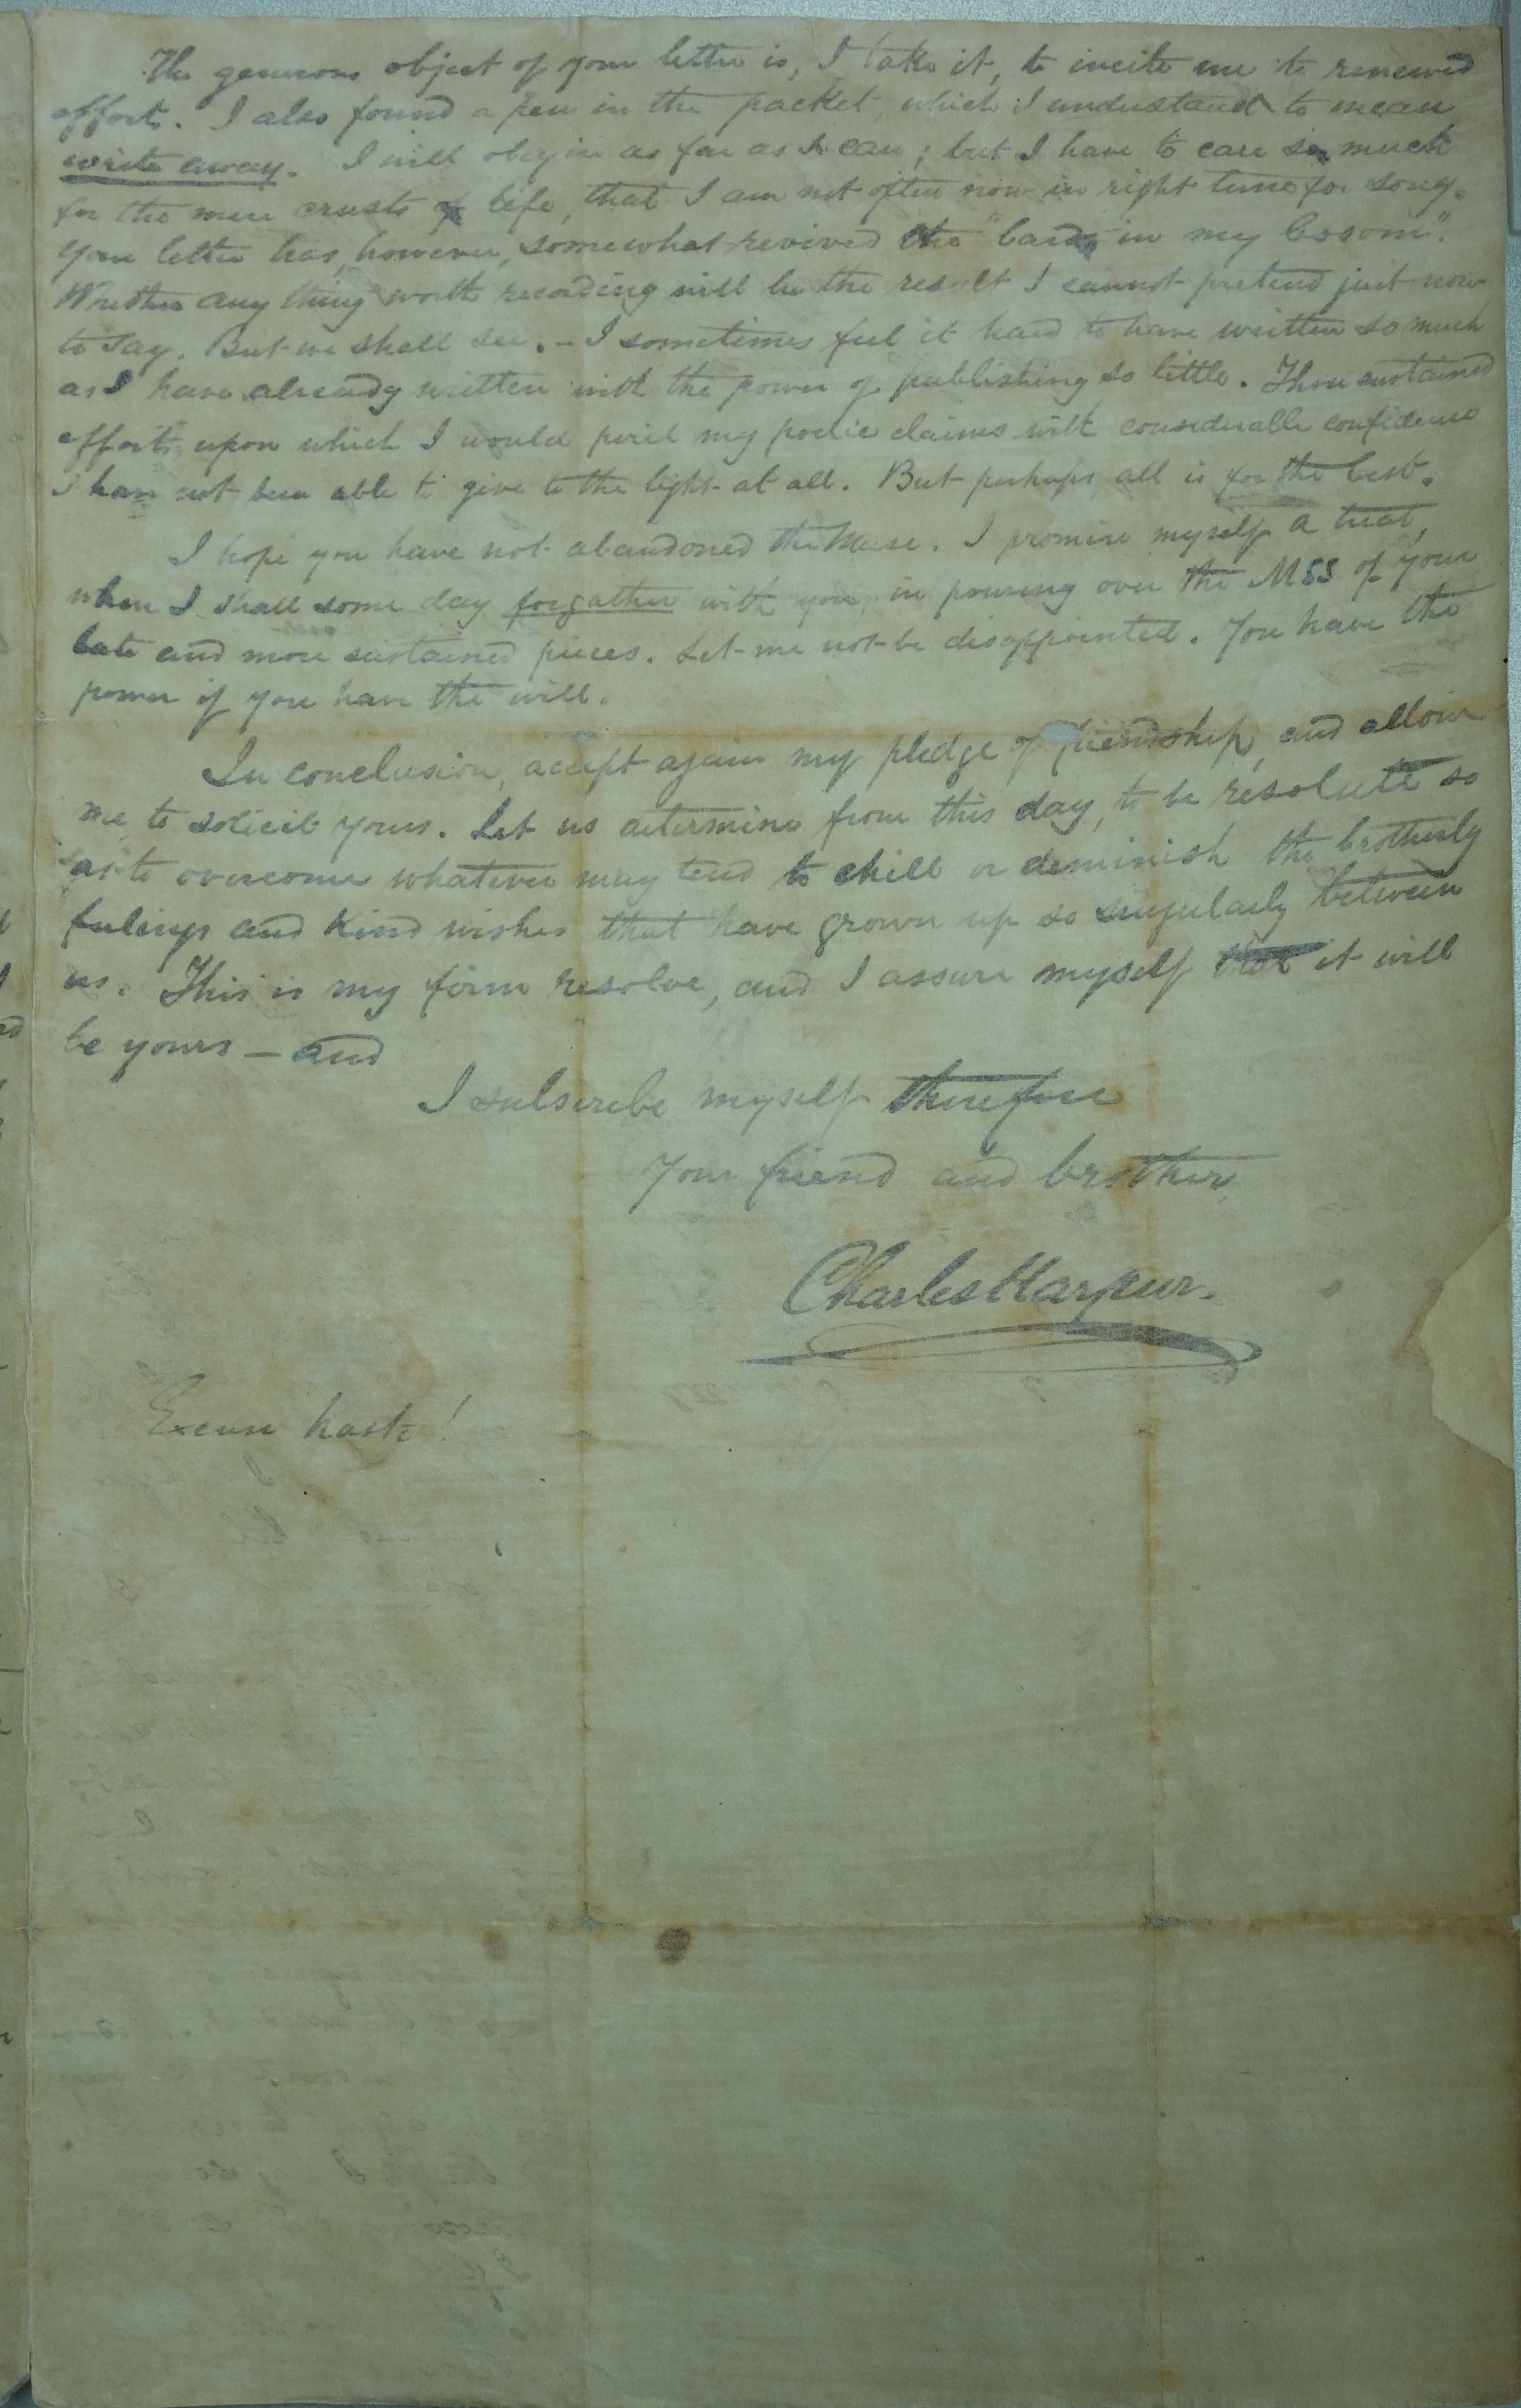 The generous object of your letter is, I take it, to incite me to renewed
effort. I also found a pen in the packet, which I understand to mean
write away. I will obey in as far as I can; but I have to care so much
for the mere crusts of life, that I am not often now in right tune for song.
Your letter has, however, somewhat revived the "bard in my bosom".
Whether any thing worth recording will be the result I cannot pretend just now
to say. But we shall see. – I sometimes feel it hard to have written so much
as I have already written with the power of publishing so little. Those sustained
efforts upon which I would peril my poetic claims with considerable confidence
I have not been able to give to the light at all. But perhaps all is for the best.
I hope you have not abandoned the Muse. I promise myself a treat,
when I shall some day forgather with you, in pouring over the MSS of your
late and more sustained pieces. Let me not be disappointed. You have the
power if you have the will.
In conclusion, accept again my pledge of friendship, and allow
me to solicit yours. Let us determine from this day, to be resolute so
as to overcome whatever may tend to chill or deminish the brotherly
feelings and kind wishes that have grown up so singularly between
us. This is my firm resolve, and I assure myself that it will
be yours – and
I subscribe myself therefore
Your friend and brother,
Charles Harpur.
Excuse haste!